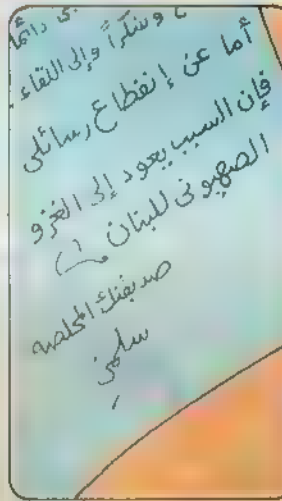 دائما
وشكراً وإلى اللقاء
أما عن إنقطاع رسائلي
فإن السبب يعود إلى الغزو
الصهيوني للبنان
صديقتك المخلصه
سلمى